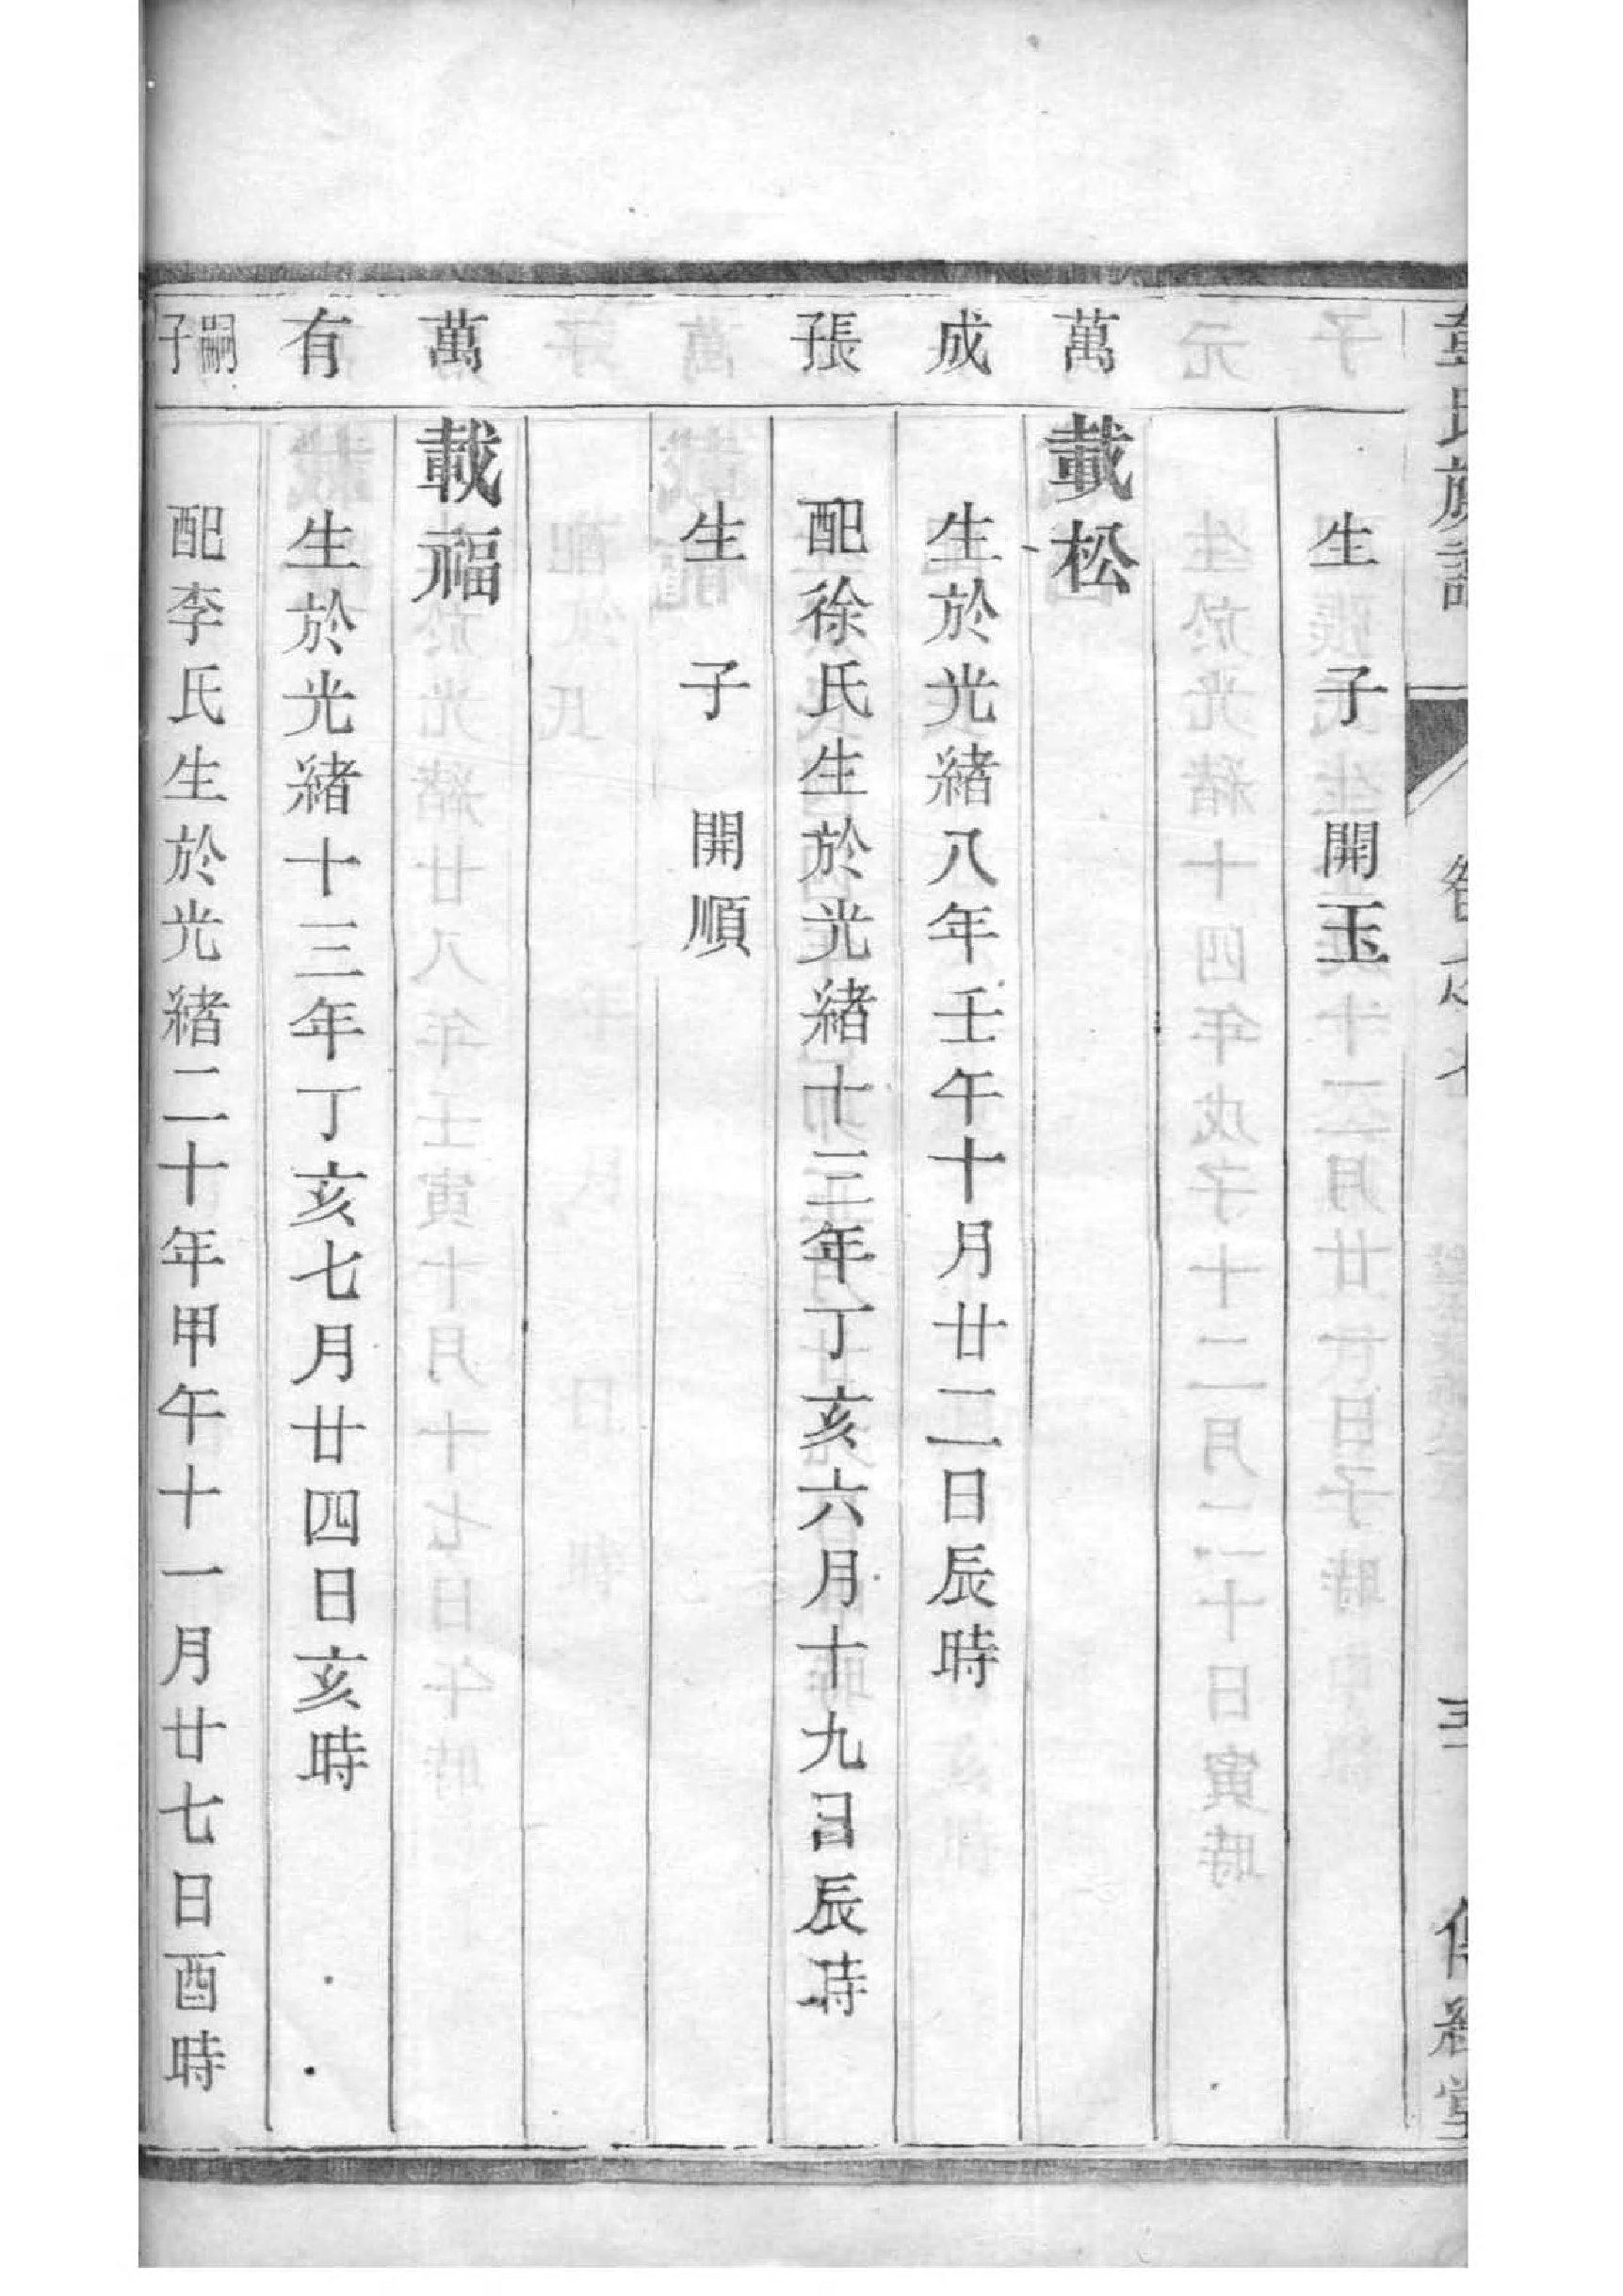 生子開玉
萬
載松
成
生於光緒八年壬午十月廿二日辰時
張子
配徐氏生於光緒十三年丁亥六月十九日辰時
生子開順
萬
載福
有
生於光緒十三年丁亥七月廿四日亥時
嗣子
配李氏生於光緒二十年甲午十一月廿七日酉時